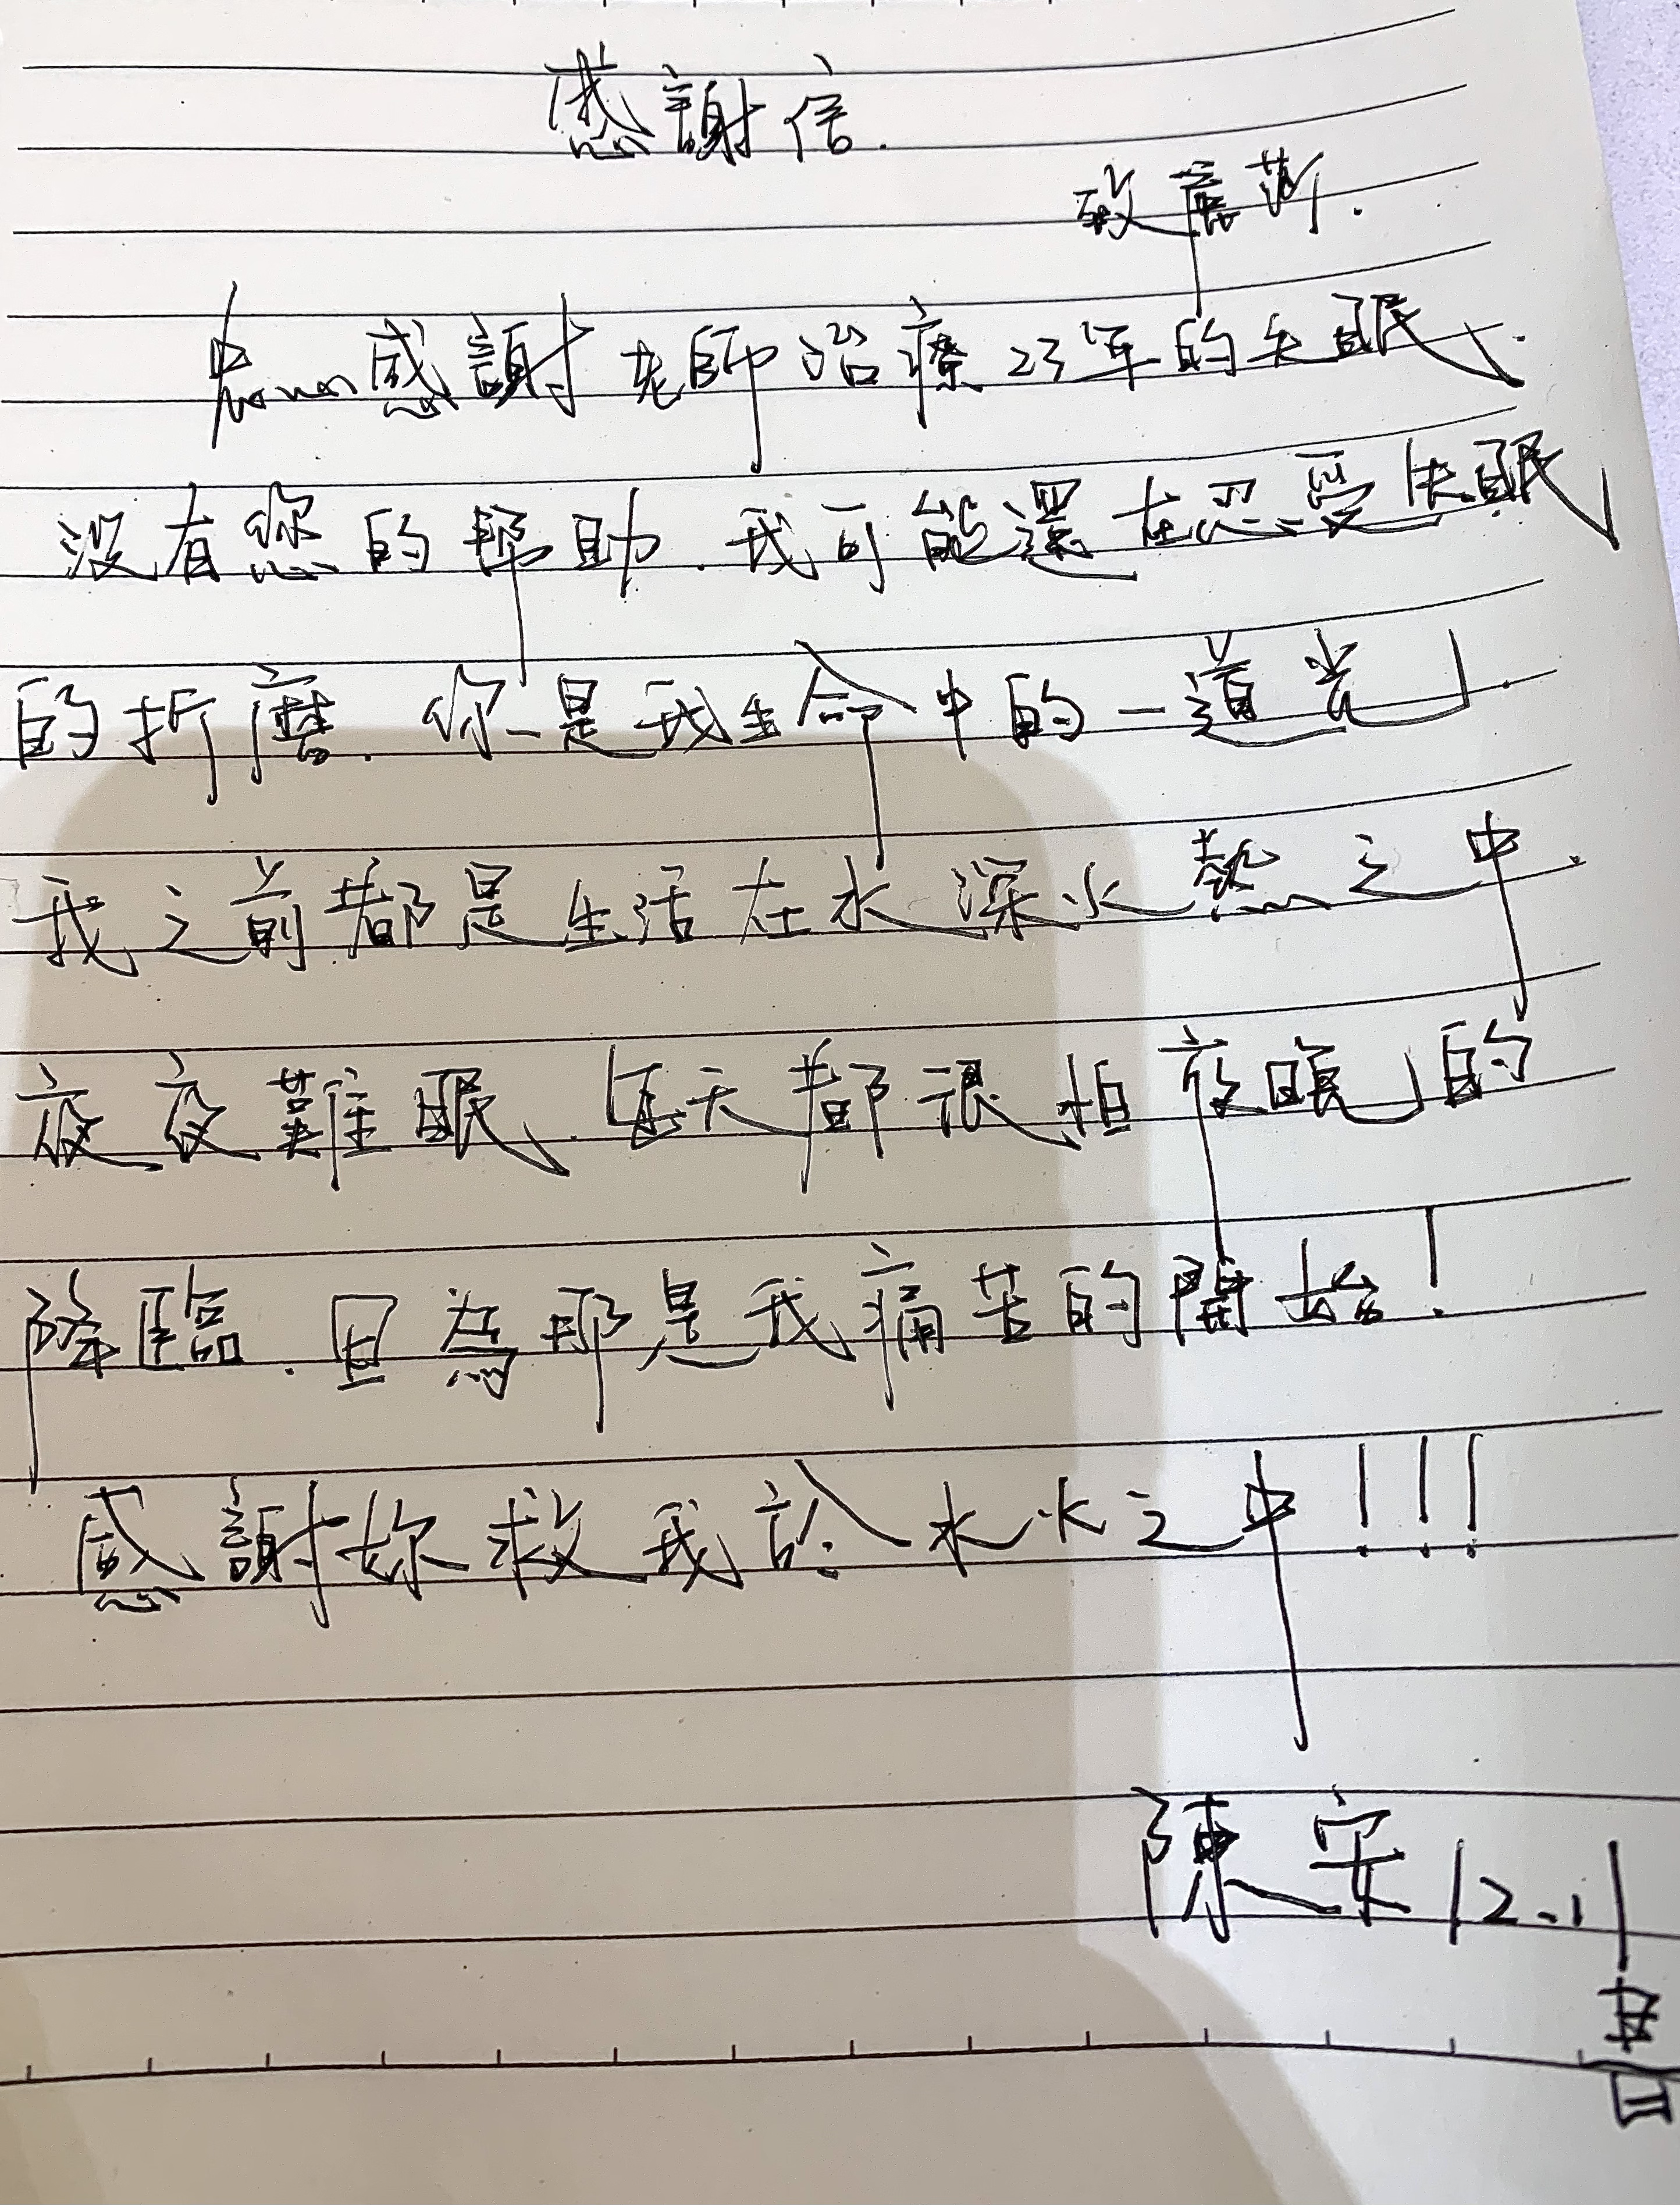 感謝信.
致
感謝老師治療23年的失眠.
沒有您的幫助.我可能還在忍受失眠
的折磨.你是我生命中的一道光.
我之前都是生活在水深火熱之中.
夜夜難眠.每天都很怕夜晚的
降臨.因為那是我痛苦的開始!
感謝妳救我於水火之中!!!
陳安12.1